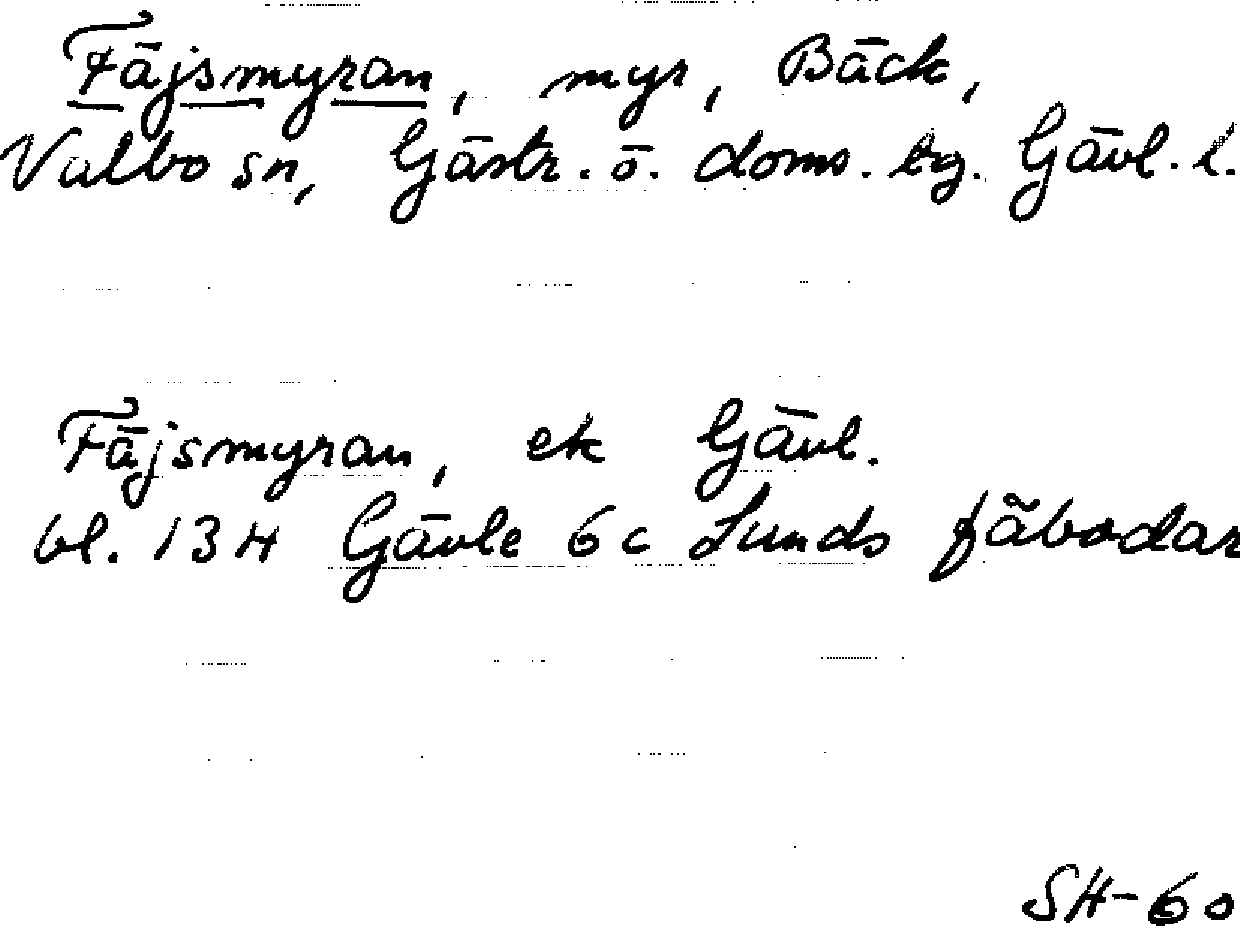 Fäjsmyran, myr, Bäck,
Valbo sn, Gästr. ö. doms. tg. Gävl. l.
Fäjsmyran, ek Gävl.
bl. 13H Gävle 6c Lunds fäbodar
SH-60